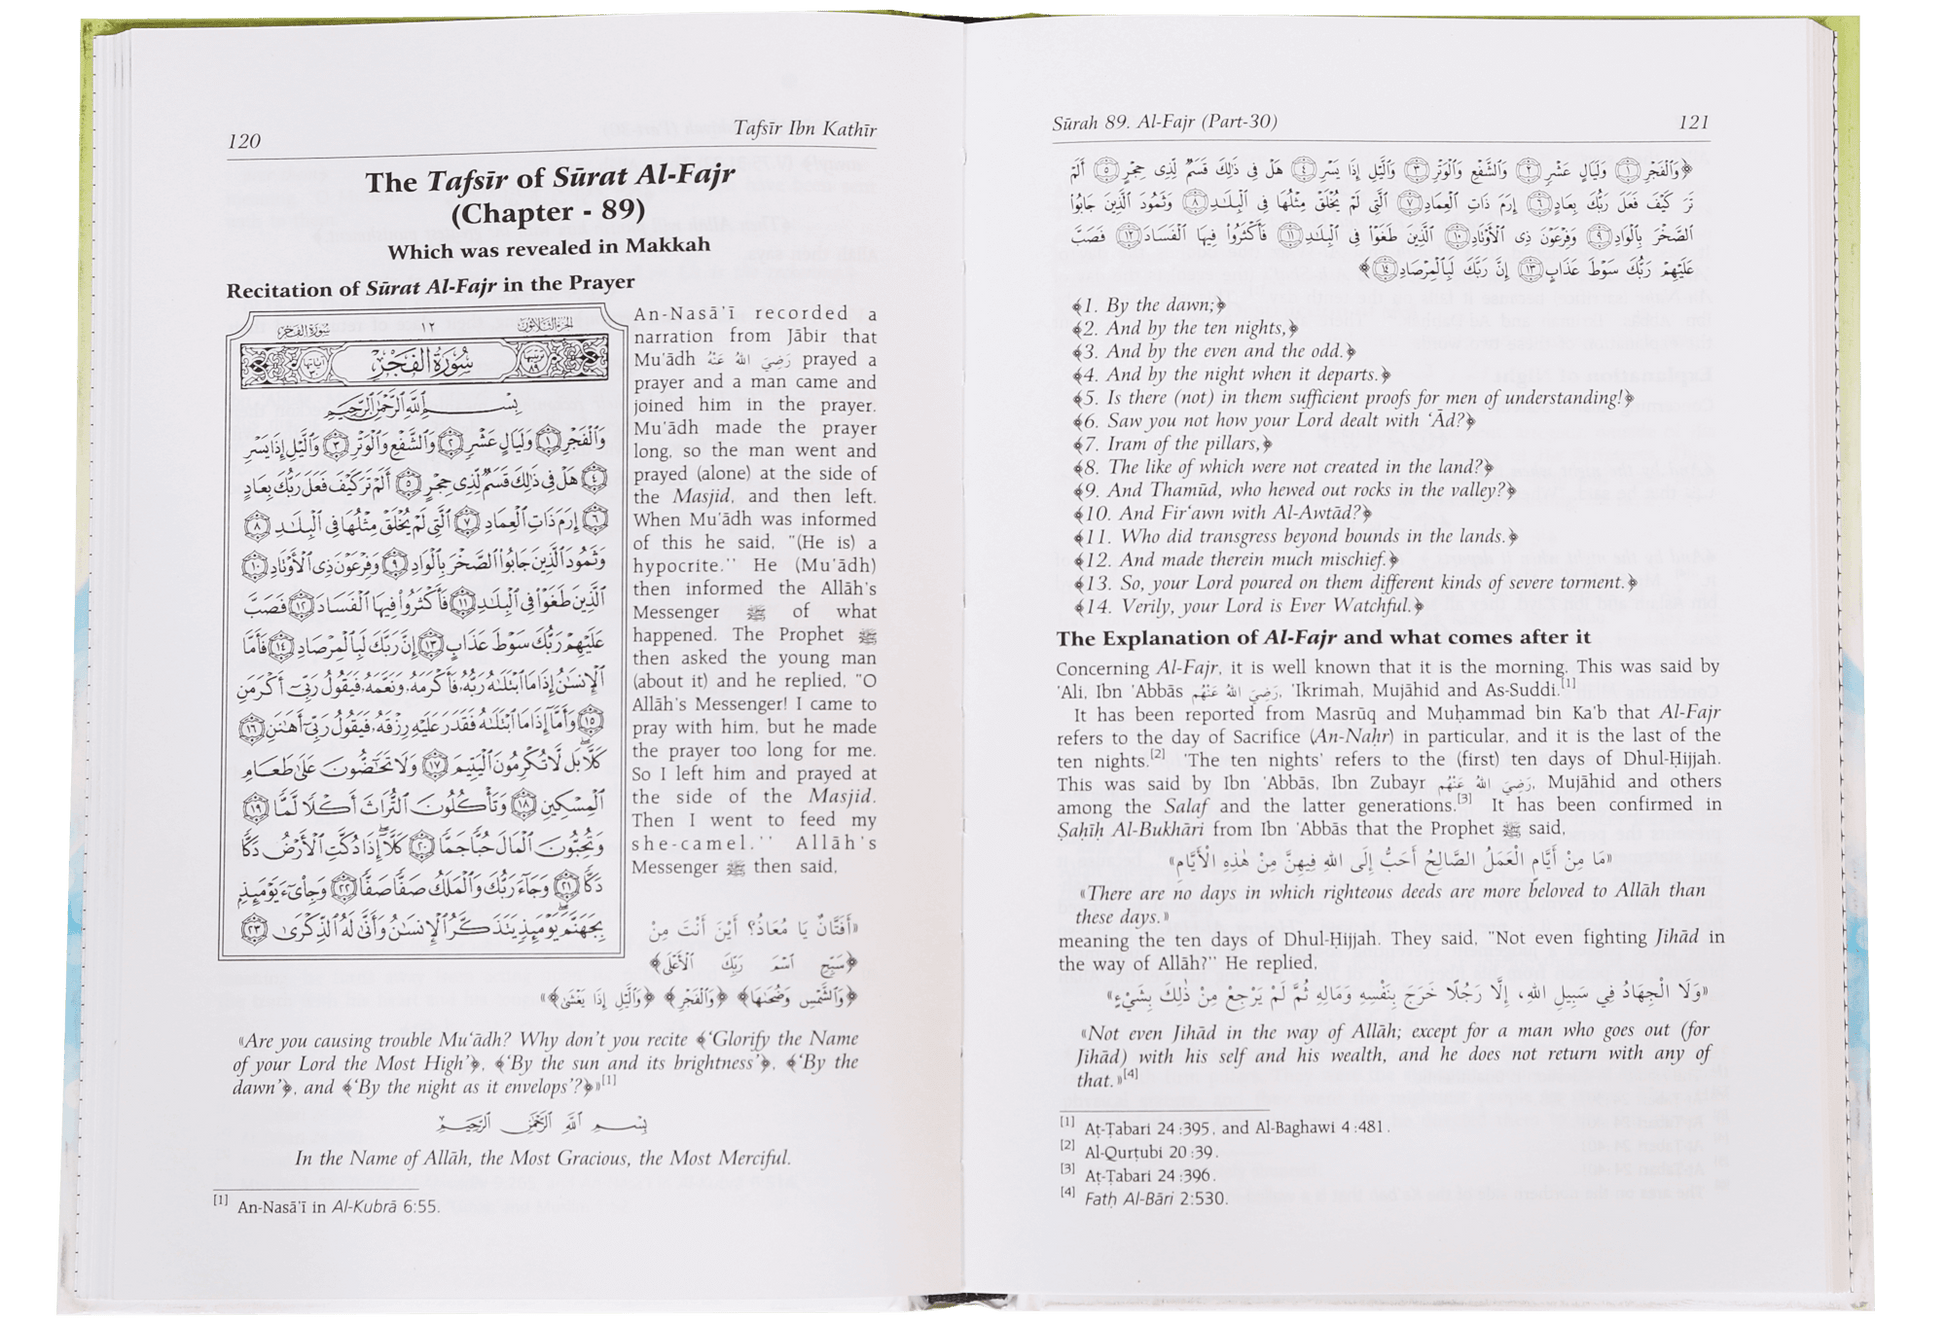 120
Tafsīr Ibn Kathīr
The Tafsīr of Sūrat Al-Fajr
(Chapter - 89)
Which was revealed in Makkah
Recitation of Sūrat Al-Fajr in the Prayer
سورة الفجر ١٢ الجزء الثلاثون
آياتها ٣٠ سُورَةُ الفَجْرِ ترتيبها ٨٩
بِسْمِ ٱللَّهِ ٱلرَّحْمَٰنِ ٱلرَّحِيمِ
وَٱلْفَجْرِ ١ وَلَيَالٍ عَشْرٍ ٢ وَٱلشَّفْعِ وَٱلْوَتْرِ ٣ وَٱلَّيْلِ إِذَا يَسْرِ
٤ هَلْ فِى ذَٰلِكَ قَسَمٌ لِّذِى حِجْرٍ ٥ أَلَمْ تَرَ كَيْفَ فَعَلَ رَبُّكَ بِعَادٍ
٦ إِرَمَ ذَاتِ ٱلْعِمَادِ ٧ ٱلَّتِى لَمْ يُخْلَقْ مِثْلُهَا فِى ٱلْبِلَٰدِ ٨
وَثَمُودَ ٱلَّذِينَ جَابُوا۟ ٱلصَّخْرَ بِٱلْوَادِ ٩ وَفِرْعَوْنَ ذِى ٱلْأَوْتَادِ ١٠
ٱلَّذِينَ طَغَوْا۟ فِى ٱلْبِلَٰدِ ١١ فَأَكْثَرُوا۟ فِيهَا ٱلْفَسَادَ ١٢ فَصَبَّ
عَلَيْهِمْ رَبُّكَ سَوْطَ عَذَابٍ ١٣ إِنَّ رَبَّكَ لَبِٱلْمِرْصَادِ ١٤ فَأَمَّا
ٱلْإِنسَٰنُ إِذَا مَا ٱبْتَلَىٰهُ رَبُّهُۥ فَأَكْرَمَهُۥ وَنَعَّمَهُۥ فَيَقُولُ رَبِّىٓ أَكْرَمَنِ
١٥ وَأَمَّآ إِذَا مَا ٱبْتَلَىٰهُ فَقَدَرَ عَلَيْهِ رِزْقَهُۥ فَيَقُولُ رَبِّىٓ أَهَٰنَنِ ١٦
كَلَّا بَل لَّا تُكْرِمُونَ ٱلْيَتِيمَ ١٧ وَلَا تَحَٰٓضُّونَ عَلَىٰ طَعَامِ
ٱلْمِسْكِينِ ١٨ وَتَأْكُلُونَ ٱلتُّرَاثَ أَكْلًا لَّمًّا ١٩
وَتُحِبُّونَ ٱلْمَالَ حُبًّا جَمًّا ٢٠ كَلَّآ إِذَا دُكَّتِ ٱلْأَرْضُ دَكًّا
دَكًّا ٢١ وَجَآءَ رَبُّكَ وَٱلْمَلَكُ صَفًّا صَفًّا ٢٢ وَجِا۟ىٓءَ يَوْمَئِذٍۭ
بِجَهَنَّمَ يَوْمَئِذٍ يَتَذَكَّرُ ٱلْإِنسَٰنُ وَأَنَّىٰ لَهُ ٱلذِّكْرَىٰ ٢٣
An-Nasā'ī recorded a
narration from Jābir that
Mu'ādh رَضِيَ اللهُ عَنْهُ prayed a
prayer and a man came and
joined him in the prayer.
Mu'ādh made the prayer
long, so the man went and
prayed (alone) at the side of
the Masjid, and then left.
When Mu'ādh was informed
of this he said, "(He is) a
hypocrite.'' He (Mu'ādh)
then informed the Allāh's
Messenger ﷺ of what
happened. The Prophet ﷺ
then asked the young man
(about it) and he replied, "O
Allāh's Messenger! I came to
pray with him, but he made
the prayer too long for me.
So I left him and prayed at
the side of the Masjid.
Then I went to feed my
she-camel.'' Allāh's
Messenger ﷺ then said,
«أَفَتَّانٌ يَا مُعَاذُ؟ أَيْنَ أَنْتَ مِنْ
﴿سَبِّحِ ٱسْمَ رَبِّكَ ٱلْأَعْلَى﴾
﴿وَٱلشَّمْسِ وَضُحَىٰهَا﴾ ﴿وَٱلْفَجْرِ﴾ ﴿وَٱلَّيْلِ إِذَا يَغْشَىٰ﴾»
«Are you causing trouble Mu'ādh? Why don't you recite ﴾'Glorify the Name
of your Lord the Most High'﴿, ﴾'By the sun and its brightness'﴿, ﴾'By the
dawn'﴿, and ﴾'By the night as it envelops'?﴿»[1]
بِسْمِ ٱللَّهِ ٱلرَّحْمَٰنِ ٱلرَّحِيمِ
In the Name of Allāh, the Most Gracious, the Most Merciful.
[1] An-Nasā'ī in Al-Kubrā 6:55.
Sūrah 89. Al-Fajr (Part-30)
121
﴿وَٱلْفَجْرِ ١ وَلَيَالٍ عَشْرٍ ٢ وَٱلشَّفْعِ وَٱلْوَتْرِ ٣ وَٱلَّيْلِ إِذَا يَسْرِ ٤ هَلْ فِى ذَٰلِكَ قَسَمٌ لِّذِى حِجْرٍ ٥ أَلَمْ
تَرَ كَيْفَ فَعَلَ رَبُّكَ بِعَادٍ ٦ إِرَمَ ذَاتِ ٱلْعِمَادِ ٧ ٱلَّتِى لَمْ يُخْلَقْ مِثْلُهَا فِى ٱلْبِلَٰدِ ٨ وَثَمُودَ ٱلَّذِينَ جَابُوا۟
ٱلصَّخْرَ بِٱلْوَادِ ٩ وَفِرْعَوْنَ ذِى ٱلْأَوْتَادِ ١٠ ٱلَّذِينَ طَغَوْا۟ فِى ٱلْبِلَٰدِ ١١ فَأَكْثَرُوا۟ فِيهَا ٱلْفَسَادَ ١٢ فَصَبَّ
عَلَيْهِمْ رَبُّكَ سَوْطَ عَذَابٍ ١٣ إِنَّ رَبَّكَ لَبِٱلْمِرْصَادِ ١٤﴾
﴾1. By the dawn;﴿
﴾2. And by the ten nights,﴿
﴾3. And by the even and the odd.﴿
﴾4. And by the night when it departs.﴿
﴾5. Is there (not) in them sufficient proofs for men of understanding!﴿
﴾6. Saw you not how your Lord dealt with 'Ād?﴿
﴾7. Iram of the pillars,﴿
﴾8. The like of which were not created in the land?﴿
﴾9. And Thamūd, who hewed out rocks in the valley?﴿
﴾10. And Fir'awn with Al-Awtād?﴿
﴾11. Who did transgress beyond bounds in the lands.﴿
﴾12. And made therein much mischief.﴿
﴾13. So, your Lord poured on them different kinds of severe torment.﴿
﴾14. Verily, your Lord is Ever Watchful.﴿
The Explanation of Al-Fajr and what comes after it
Concerning Al-Fajr, it is well known that it is the morning. This was said by
'Ali, Ibn 'Abbās رَضِيَ اللهُ عَنْهُم, 'Ikrimah, Mujāhid and As-Suddi.[1]
It has been reported from Masrūq and Muḥammad bin Ka'b that Al-Fajr
refers to the day of Sacrifice (An-Naḥr) in particular, and it is the last of the
ten nights.[2] 'The ten nights' refers to the (first) ten days of Dhul-Ḥijjah.
This was said by Ibn 'Abbās, Ibn Zubayr رَضِيَ اللهُ عَنْهُم, Mujāhid and others
among the Salaf and the latter generations.[3] It has been confirmed in
Ṣaḥīḥ Al-Bukhāri from Ibn 'Abbās that the Prophet ﷺ said,
«مَا مِنْ أَيَّامٍ الْعَمَلُ الصَّالِحُ أَحَبُّ إِلَى اللهِ فِيهِنَّ مِنْ هٰذِهِ الْأَيَّامِ»
«There are no days in which righteous deeds are more beloved to Allāh than
these days.»
meaning the ten days of Dhul-Ḥijjah. They said, "Not even fighting Jihād in
the way of Allāh?'' He replied,
«وَلَا الْجِهَادُ فِي سَبِيلِ اللهِ، إِلَّا رَجُلًا خَرَجَ بِنَفْسِهِ وَمَالِهِ ثُمَّ لَمْ يَرْجِعْ مِنْ ذٰلِكَ بِشَيْءٍ»
«Not even Jihād in the way of Allāh; except for a man who goes out (for
Jihād) with his self and his wealth, and he does not return with any of
that.»[4]
[1] Aṭ-Ṭabari 24:395, and Al-Baghawi 4:481.
[2] Al-Qurṭubi 20:39.
[3] Aṭ-Ṭabari 24:396.
[4] Fatḥ Al-Bāri 2:530.